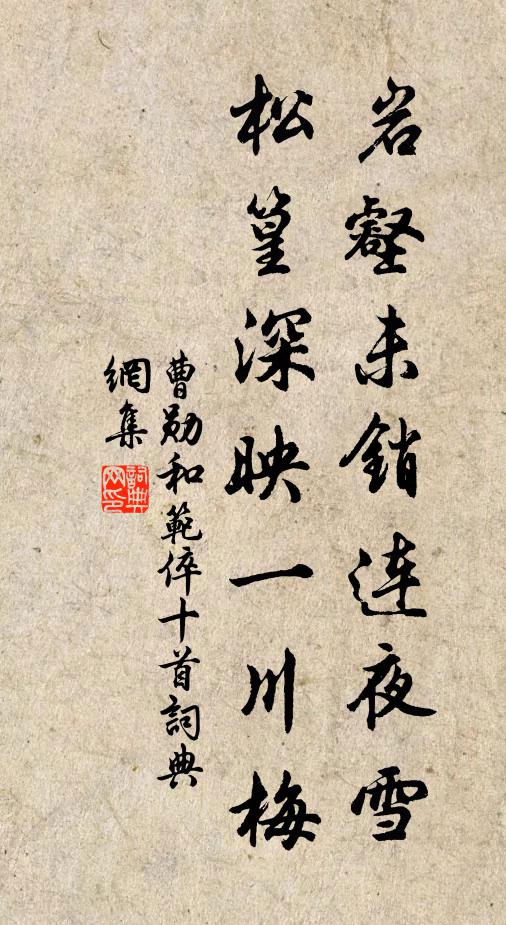 岩壑未銷连夜雪
松篁深映一川梅
曹勛和範倅十首詞典
網集
詞典
网印